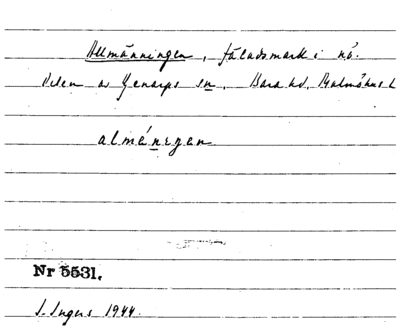 Allmänningen, fäladsmark i nö.
delen av Genarps sn, Bara hd, Malmöhus l
almäneŋan
Nr 5531.
S. Ingers 1944.